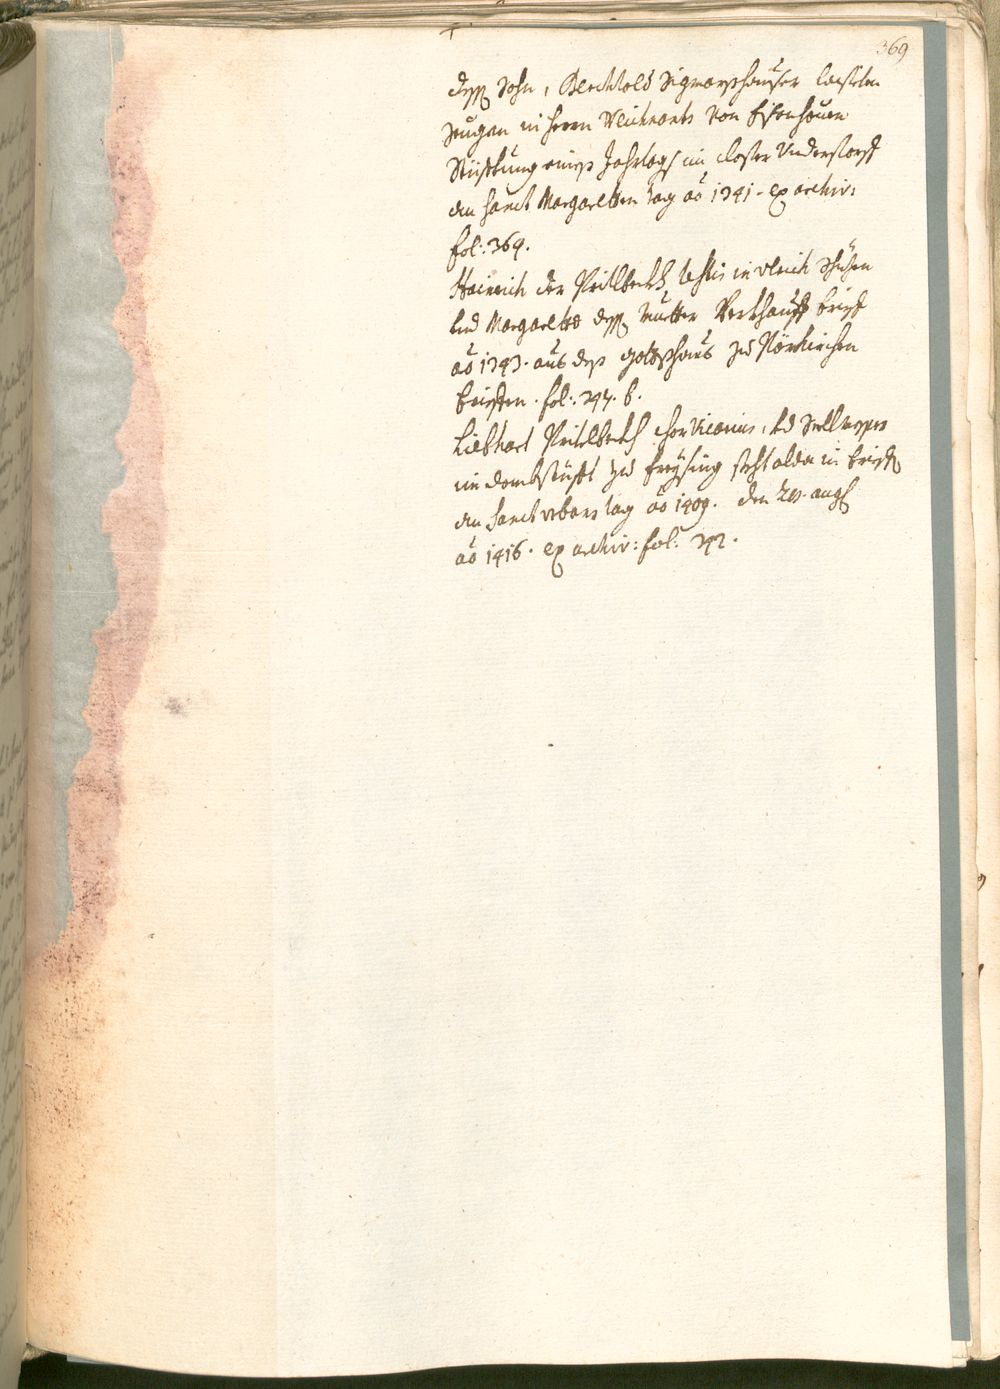 369
dess Sohn, Berchtold Sigmarshauser laisten
zeugen in herrn Weichnants von Eisenhouen
Stüfftung aines Jahrtags im closter Vnderstorff
an Sanct Margarethen tag ao 1341. ex archiv:
fol: 369.
Hainrich der Pritlbeckh testis in Vlrich
vnd Margaretha dess Muetter Verkhauff brieff
ao 1343. aus des gottshaus zu
brieffen. fol: 247. b.
Liebhart Pritelbeckh chor Vicarius, vnd
im dombstüfft zu freysing steht alda in brieff
an Sanct Vrbans tag ao 1409. den augs
ao 1416. ex archiv: fol: 242.